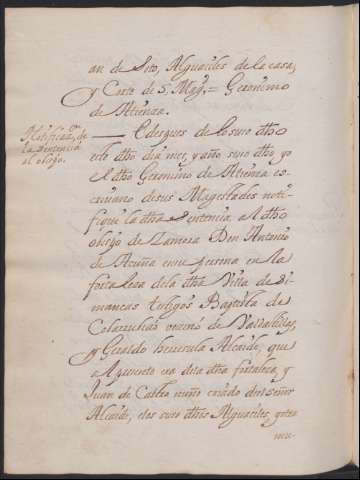 an de Soto, Alguaciles de la casa,
y Corte de S. Mag. = Geronimo
de Atienza.
Notificaz.on de
la Sentencia
al obispo.
E despues de lo suso dho
este dho dia mes, y año suso dho, yo
el dho Geronimo de Atienza es-
crivano de sus Magestades noti-
fiqué la dha Sentencia al dho
obispo de Zamora Don Antonio
de Acuña en su persona en la
fortaleza de la dha Villa de Si-
mancas testigos Baptista de
vecino de Valdabillas,
y Geraldo Alcaide, que
a la presente era de la dha fortaleza, y
Juan de Castro nuño criado del Señor
Alcaide, e los suso dhos Alguaciles, y otra
mu-